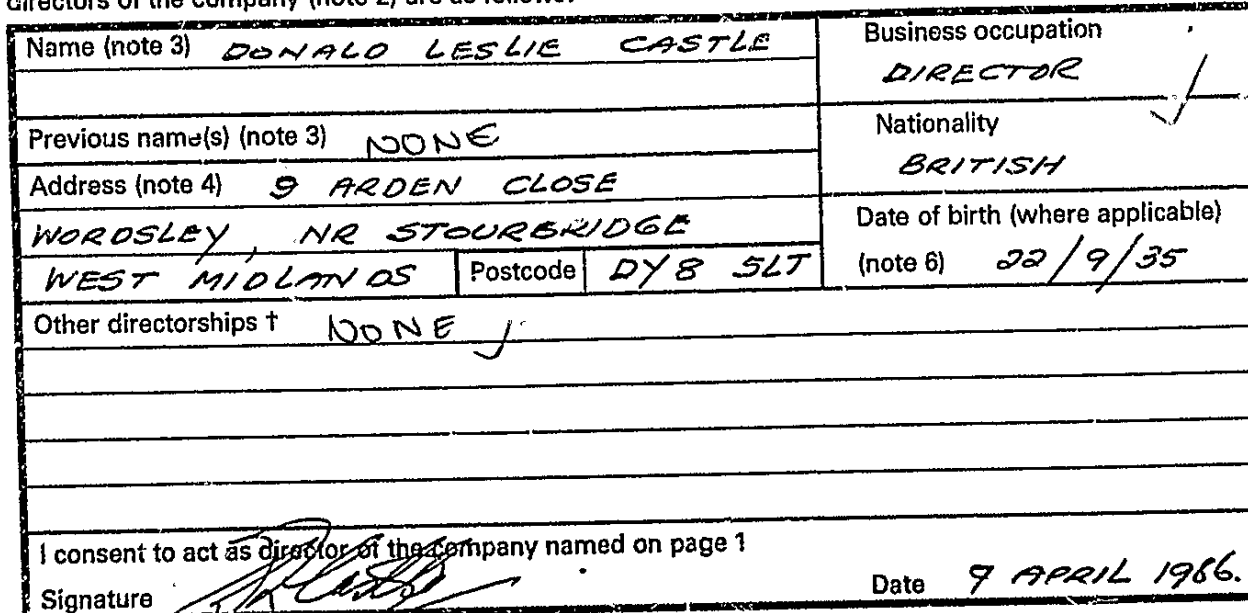 directors of the company (note 2) are as follows:
Name (note 3) DONALD LESLIE CASTLE
Business occupation
DIRECTOR
Previous name(s) (note 3) NONE
Nationality
BRITISH
Address (note 4) 9 ARDEN CLOSE
WORDSLEY, NR STOURBRIDGE
WEST MIDLANDS Postcode DY8 5LT
Date of birth (where applicable)
(note 6) 22/9/35
Other directorships † NONE
I consent to act as director of the company named on page 1
Signature
Date 9 APRIL 1986.